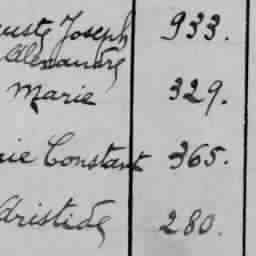 Joseph 933.
Alexandre
Marie 329.
Constant 365.
Aristide 280.